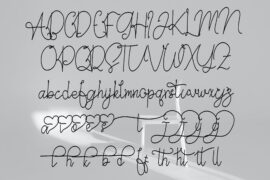 ABCDEFGHIJKLMN
OPQRSTUVWXYZ
abcdefghijklmnopqrstuvwxyz
t
l h k b d ff th ht tl ll